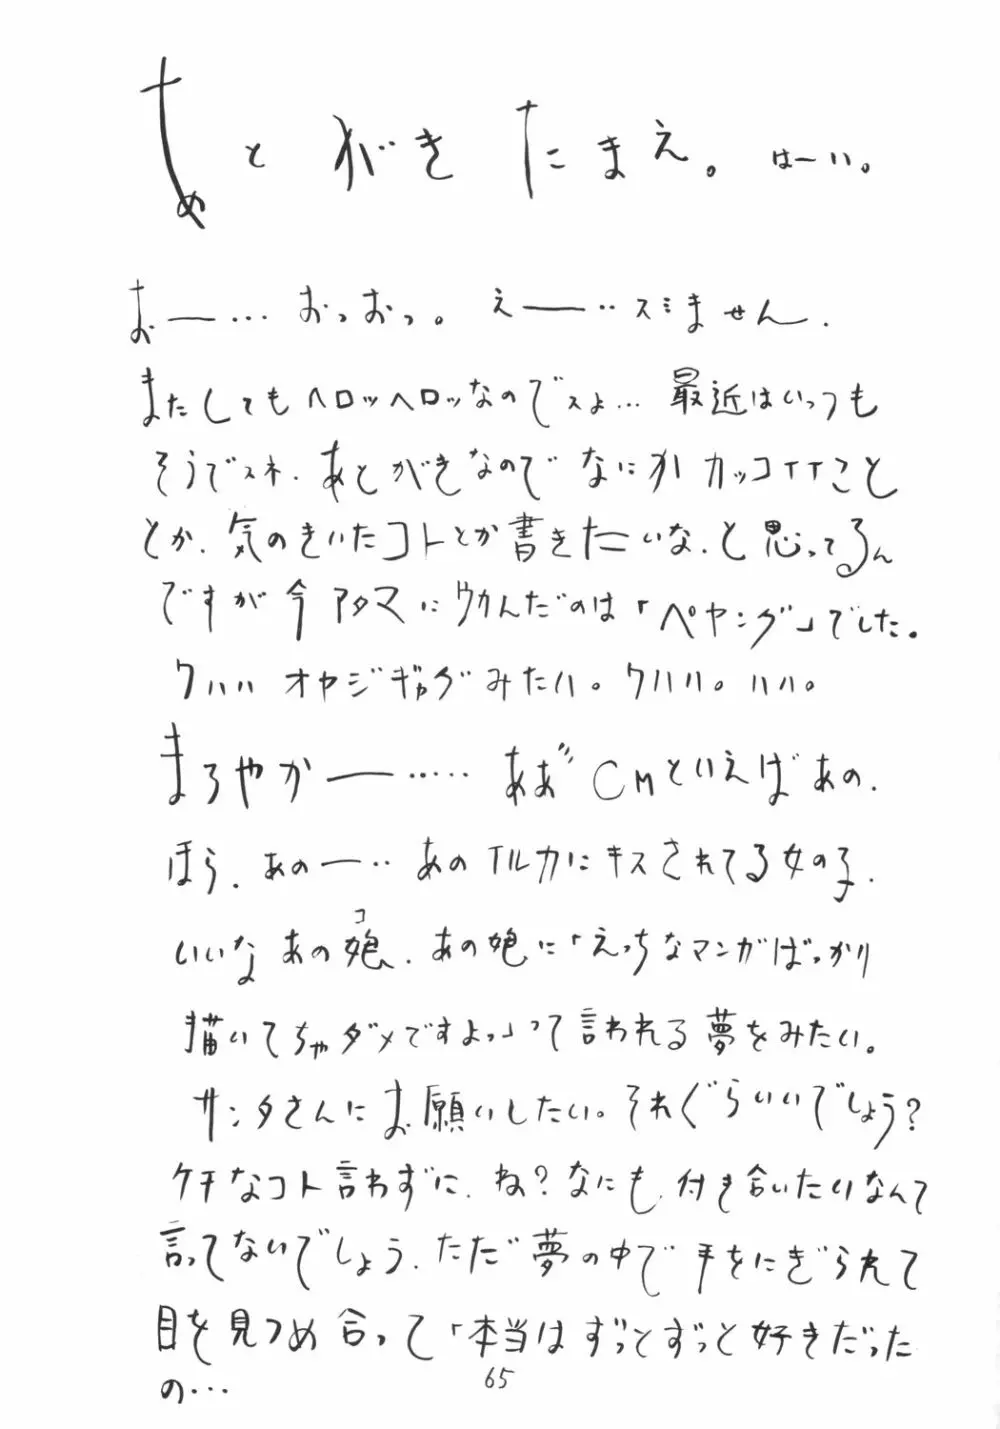 あとがきたまえ。はーい。
おー… おっおっ。 えー‥スミません.
またしてもヘロッヘロッなのでスよ… 最近はいっつも
そうでスネ. あとがきなので なにか カッコイイこと
とか. 気のきいたコトとか書きたいな. と思ってるん
ですが今アタマにウカんだのは「ペヤング」でした。
クハハ オヤジギャグみたい。クハハ。ハハ。
まろやかー…… ああ゛CMといえばあの.
ほら. あのー‥ あのイルカにキスされてる女の子.
いいなあの娘コ. あの娘に「えっちなマンガばっかり
描いてちゃダメですよっ」って言われる夢をみたい。
サンタさんにお願いしたい。それぐらいいいでしょう?
ケチなコト言わずに. ね?なにも付き合いたいなんて
言ってないでしょう. ただ夢の中で手をにぎられて
目を見つめ合って「本当はずっとずっと好きだった
の…
65